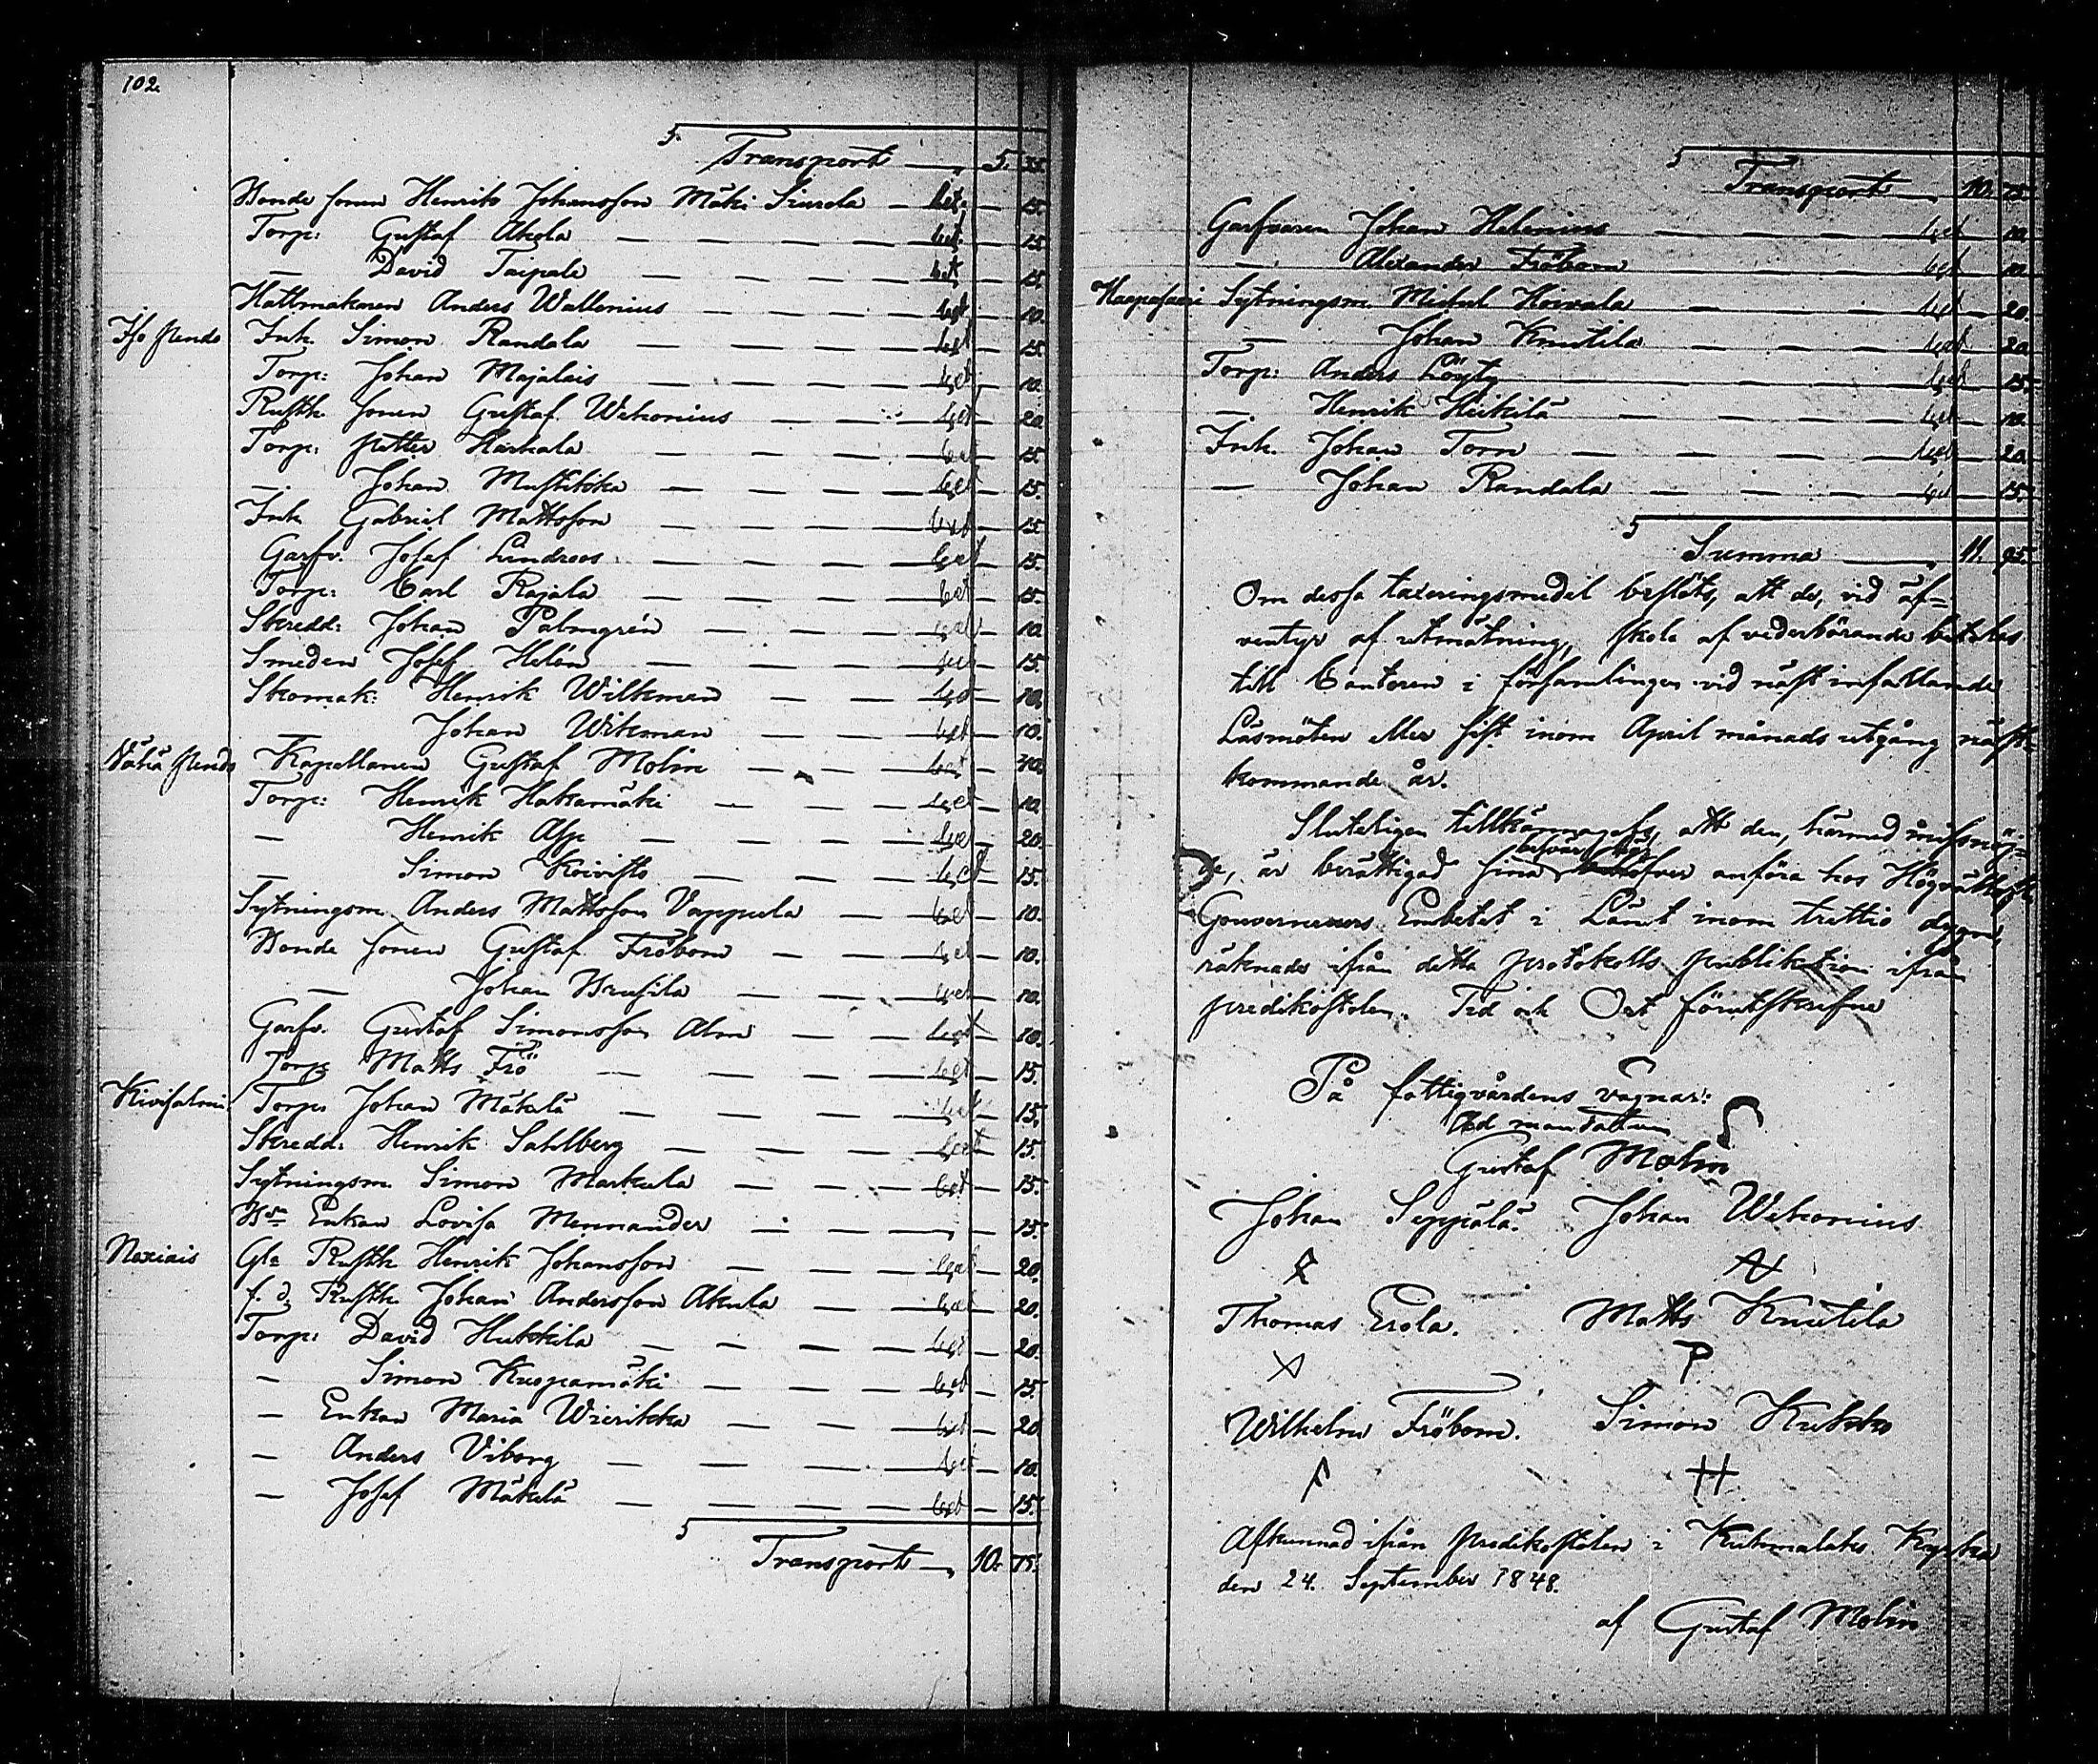 102.
Transport — 5. 35.
Bonde sonen Henrik Johansson Mäki Siurola — bet. — 15.
Torp: Gustaf Akola — bet. — 15.
— David Taipale — bet — 15.
Hattmakaren Anders Wallenius — bet — 10.
Iso Pendo Inh. Simon Randala — bet — 15.
Torp: Johan Majalais — bet — 10.
Rusth. sonen Gustaf Wekonius — bet — 20.
Torp: Petter Harkala — bet — 15.
— Johan — bet — 15.
Inh. Gabriel Mattsson — bet — 15.
Garfv. Josef Lindroos — bet — 15.
Torp: Carl Rajala — bet — 15.
Skredd: Johan Palmgrén — bet — 10.
Smeden Josef Helén — bet — 15.
Skomak: Henrik Wilkman — bet — 10.
— Johan Wikman — bet — 10.
Vähä Pendo Kapellanen Gustaf Molin — bet — 40.
Torp: Henrik Hakamäki — bet — 10.
— Henrik Alp — bet — 20.
— Simon Koivisto — bet — 15.
Sytningsm. Anders Mattsson Vappula — bet — 10.
Bonde sonen Gustaf Fröbom — bet — 10.
— Johan Brusila — bet — 10.
Garfv. Gustaf Simonsson Alm — bet — 10.
Torp: Matts Frö — bet — 15.
Kivisalmi Torp. Johan Mäkelä — bet — 15.
Skredd: Henrik Sahlberg — bet — 15.
Sytningsm. Simon Markula — bet — 15.
Enkan Lovisa Mennander — 15.
Nexiais Gle Rusth. Henrik Johansson — bet — 20.
f. d. Rusth. Johan Andersson Akula — bet — 20.
Torp: David Huhkila — bet — 20.
— Simon Kuoppamäki — bet — 15.
— Enkan Maria Wierikka — bet — 20.
— Anders Viborg — bet — 10.
— Josef Mäkelä — bet — 15.
Transport — 10. 75.
Transport — 10. 75.
Garfvaren Johan Helenius — bet — 10.
— Alexander Fröbom — bet — 10.
Haapasaari Sytningsm. Michel Hoivala — bet — 20.
— Johan Knutila — bet — 20.
Torp: Anders Löyty — bet — 15.
— Henrik Heikilä — bet — 10.
Inh. Johan Torn — bet — 20.
— Johan Randala — bet — 15.
Summa — 11. 95.
Om dessa taxeringsmedel beslöts, att de, vid äf=
ventyr af utmätning, skola af vederbörande betalas
till Cantoren i församlingen vid näst infallande
Läsmöten eller sist inom April månads utgång näst=
kommande år.
Sluteligen tillkännagafs, att den, härmed missnöj=
de, är berättigad sina besvär anföra hos Högvällofl.
Gouverneurs Embetet i Länet inom trettio dygn,
räknade ifrån detta protokolls publikation ifrån
predikostolen. Tid och Ort förutskrefne
På fattigvårdens vägnar:
Ad mandatum
Gustaf Molin
Johan Seppälä. Johan Wekonius
Thomas Erola. Matts Knutila
Wilhelm Fröbom. Simon Kukko
Afkunnad ifrån Predikostolen i Kuhmalahti Kyrka
den 24. September 1848.
af Gustaf Molin